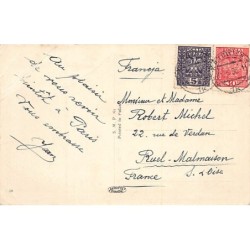 Au plaisir
de vous revoir
bientôt à Paris
Vous embrasse
Francja
Monsieur et Madame
Robert Michel
22, rue de Verdun
Rueil-Malmaison
France S. & Oise
5